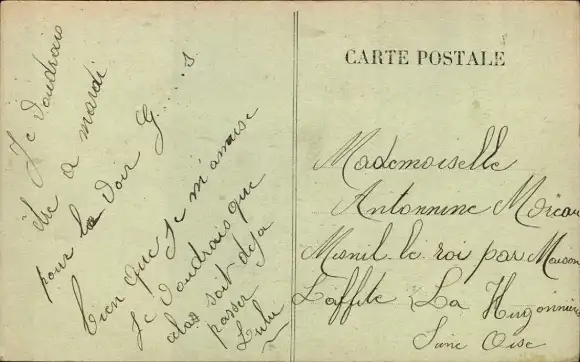 Je voudrais
être a mardi
pour la voir G.....s
bien que je m'amuse
Je voudrais que
alas soit deja
passer
Lulu
CARTE POSTALE
Mademoiselle
Antonnine
Mesnil le roi par Maison
Laffite La Hugonnière
Seine Oise